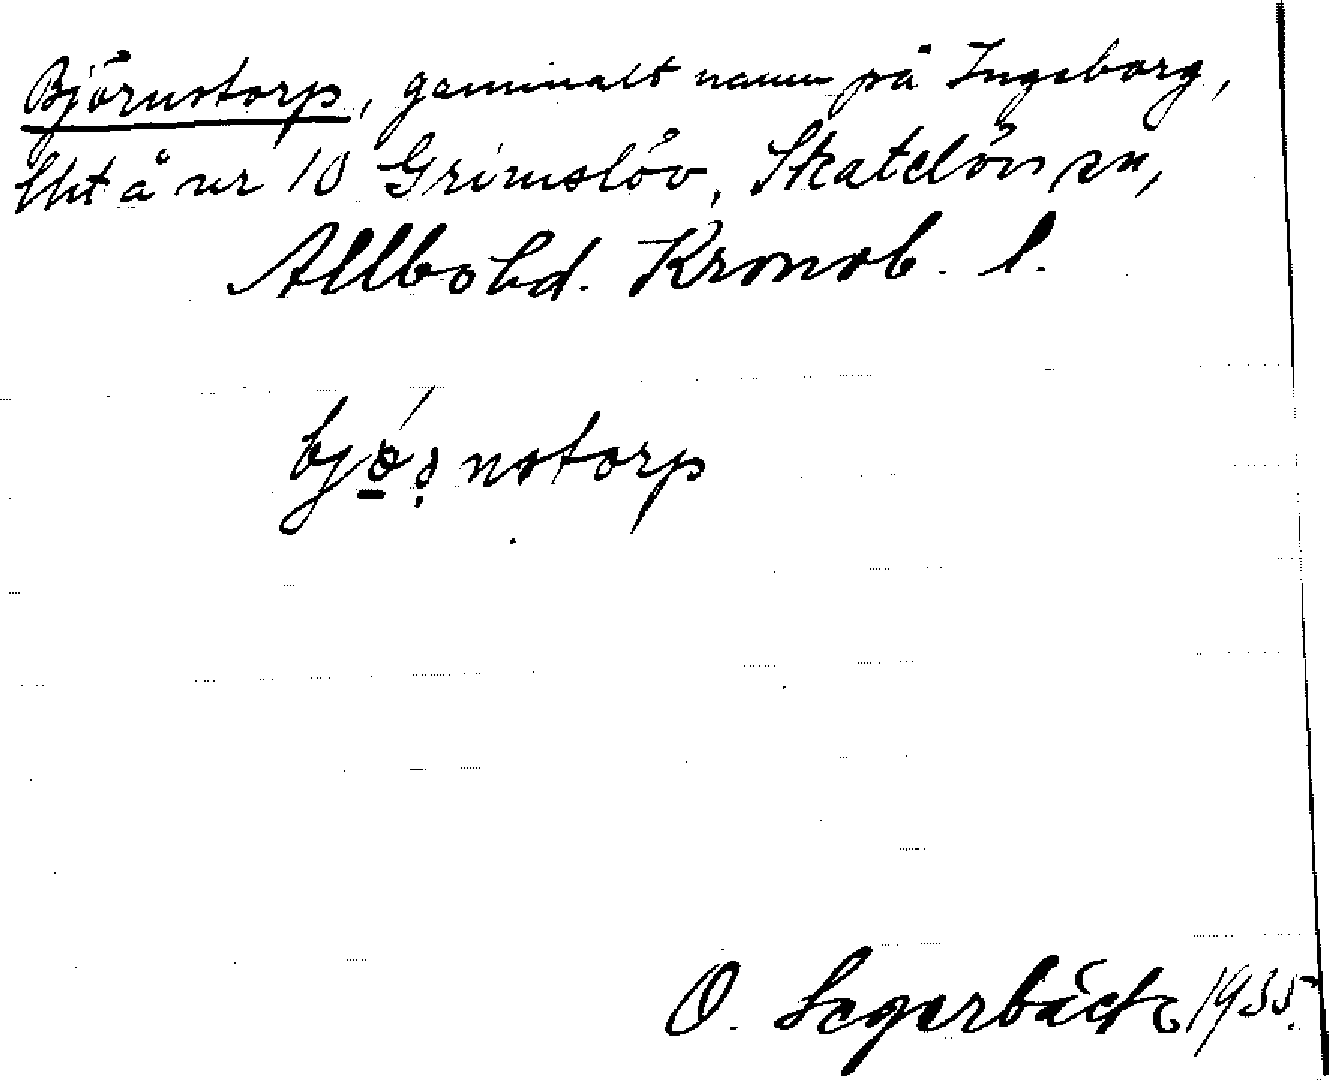 Björnstorp, gammalt namn på Ingeborg,
lht å nr 10 Grimslöv, Skatelövs sn,
Allbo hd. Kronob. l.
norstorp
O. Segerbäck 1935.